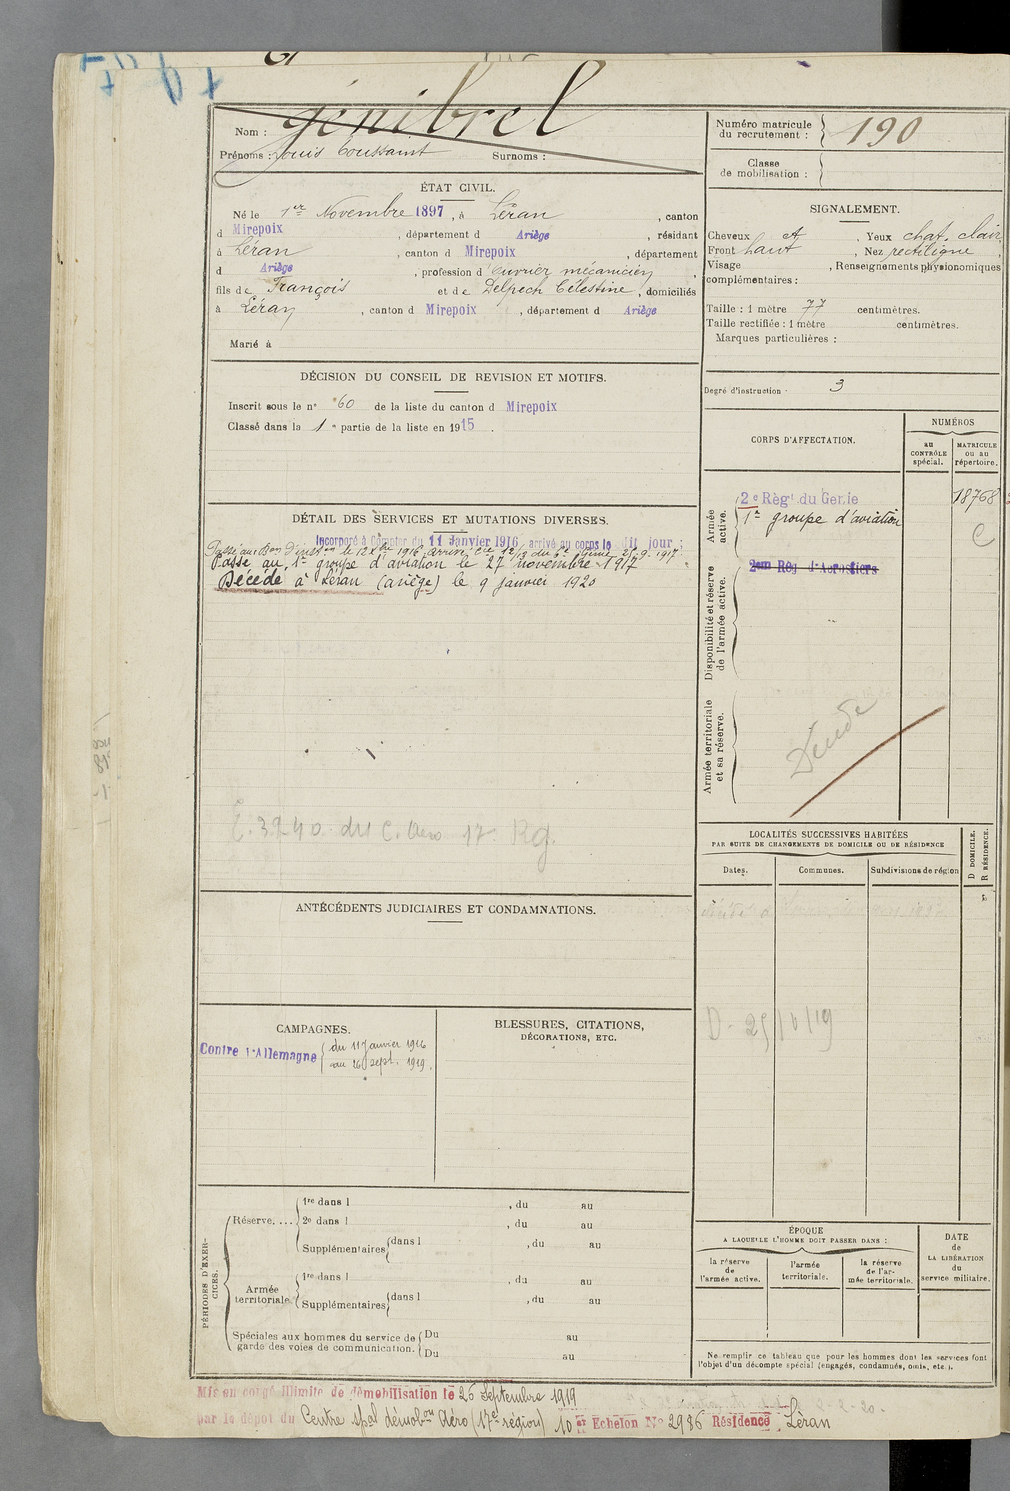 Nom : Génibrel
Prénoms : Louis Toussaint Surnoms :
ÉTAT CIVIL.
Né le 1er Novembre 1897, à Léran, canton
d Mirepoix, département d Ariège, résidant
à Léran, canton d Mirepoix, département
d Ariège, profession d'ouvrier mécanicien,
fils de François et de Delpech Célestine, domiciliés
à Léran, canton d Mirepoix, département d Ariège
Marié à
DÉCISION DU CONSEIL DE REVISION ET MOTIFS.
Inscrit sous le n° 60 de la liste du canton d Mirepoix
Classé dans la 1e partie de la liste en 1915.
DÉTAIL DES SERVICES ET MUTATIONS DIVERSES.
Incorporé à compter du 11 Janvier 1916, arrivé au corps le dit jour ;
Passé au 1er groupe d'aviation le 27 novembre 1917
Décédé à Léran (ariège) le 9 janvier 1920
ANTÉCÉDENTS JUDICIAIRES ET CONDAMNATIONS.
CAMPAGNES.
Contre l'Allemagne { du 11 Janvier 1916
au 26 sept. 1919.
BLESSURES, CITATIONS,
DÉCORATIONS, ETC.
PÉRIODES D'EXERCICES.
Réserve....
1re dans l , du au
2e dans l , du au
Supplémentaires { dans l , du au
Armée
territoriale.
1re dans l , du au
Supplémentaires { dans l , du au
Spéciales aux hommes du service de
garde des voies de communication. { Du au
Du au
Mis en congé illimité de démobilisation le 26 Septembre 1919
par le dépôt du Centre spal démobon Aéro (17e région) 10e Echelon N° 2986 Résidence Léran
Numéro matricule
du recrutement : 190
Classe
de mobilisation :
SIGNALEMENT.
Cheveux ct, Yeux chat. clair,
Front haut, Nez rectiligne,
Visage , Renseignements physionomiques
complémentaires :
Taille : 1 mètre 77 centimètres.
Taille rectifiée : 1 mètre centimètres.
Marques particulières :
Degré d'instruction : 3
CORPS D'AFFECTATION.
NUMÉROS
au
CONTRÔLE
spécial.
MATRICULE
ou au
répertoire.
Armée
active.
2e Régt du Génie 18768
1er groupe d'aviation
C
Disponibilité et réserve
de l'armée active.
2em Rég d'Aerostiers
Armée territoriale
et sa réserve.
LOCALITÉS SUCCESSIVES HABITÉES
PAR SUITE DE CHANGEMENTS DE DOMICILE OU DE RÉSIDENCE
D DOMICILE.
R RÉSIDENCE.
Dates.
Communes.
Subdivisions de région
ÉPOQUE
A LAQUELLE L'HOMME DOIT PASSER DANS :
la réserve
de
l'armée active.
l'armée
territoriale.
la réserve
de l'ar-
mée territoriale.
DATE
de
LA LIBÉRATION
du
service militaire.
Ne remplir ce tableau que pour les hommes dont les services font
l'objet d'un décompte spécial (engagés, condamnés, omis, etc.).